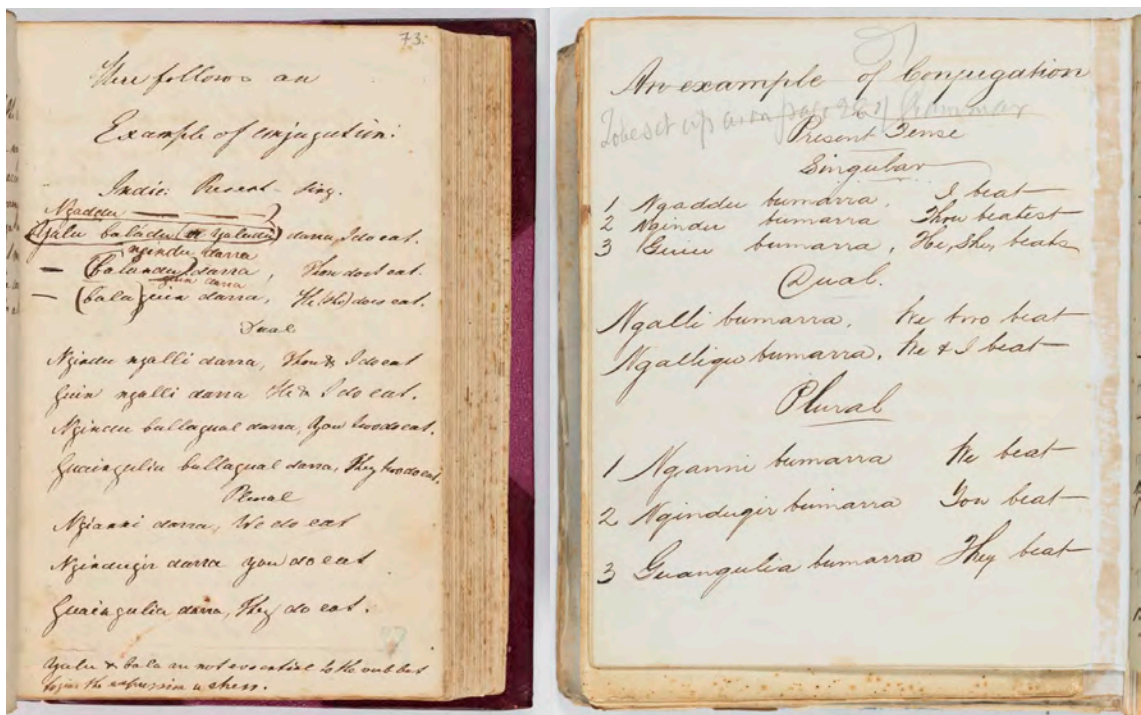 73.
Here follows an
Example of conjugation:
Indic: Present - Sing.
Ngaddu
Yalu baládu (or yaludu) darra, I do eat.
ngindu darra
— (balandu) darra, Thou dost eat.
guin darra
— (bala) guin darra, He (she) does eat.
Dual
Ngindu ngalli darra, Thou & I do eat
Guin ngalli darra He & I do eat.
Ngindu bullagual darra, You two do eat.
Guaingulia bullagual darra, They two do eat.
Plural
Ngianni darra, We do eat
Ngindugir darra you do eat
Guaingulia darra, They do eat.
Yalu & bala are not essential to the verb but
to give the expression a stress.
An example of Conjugation
To be set up as on page of Grammar
Present Tense
Singular
1 Ngaddu bumarra, I beat
2 Ngindu bumarra Thou beatest
3 Guin bumarra, He, She, beats
Dual.
Ngalli bumarra, We two beat
Ngalligu bumarra, He & I beat
Plural
1 Nganni bumarra We beat
2 Ngindugir bumarra You beat
3 Guangulia bumarra They beat